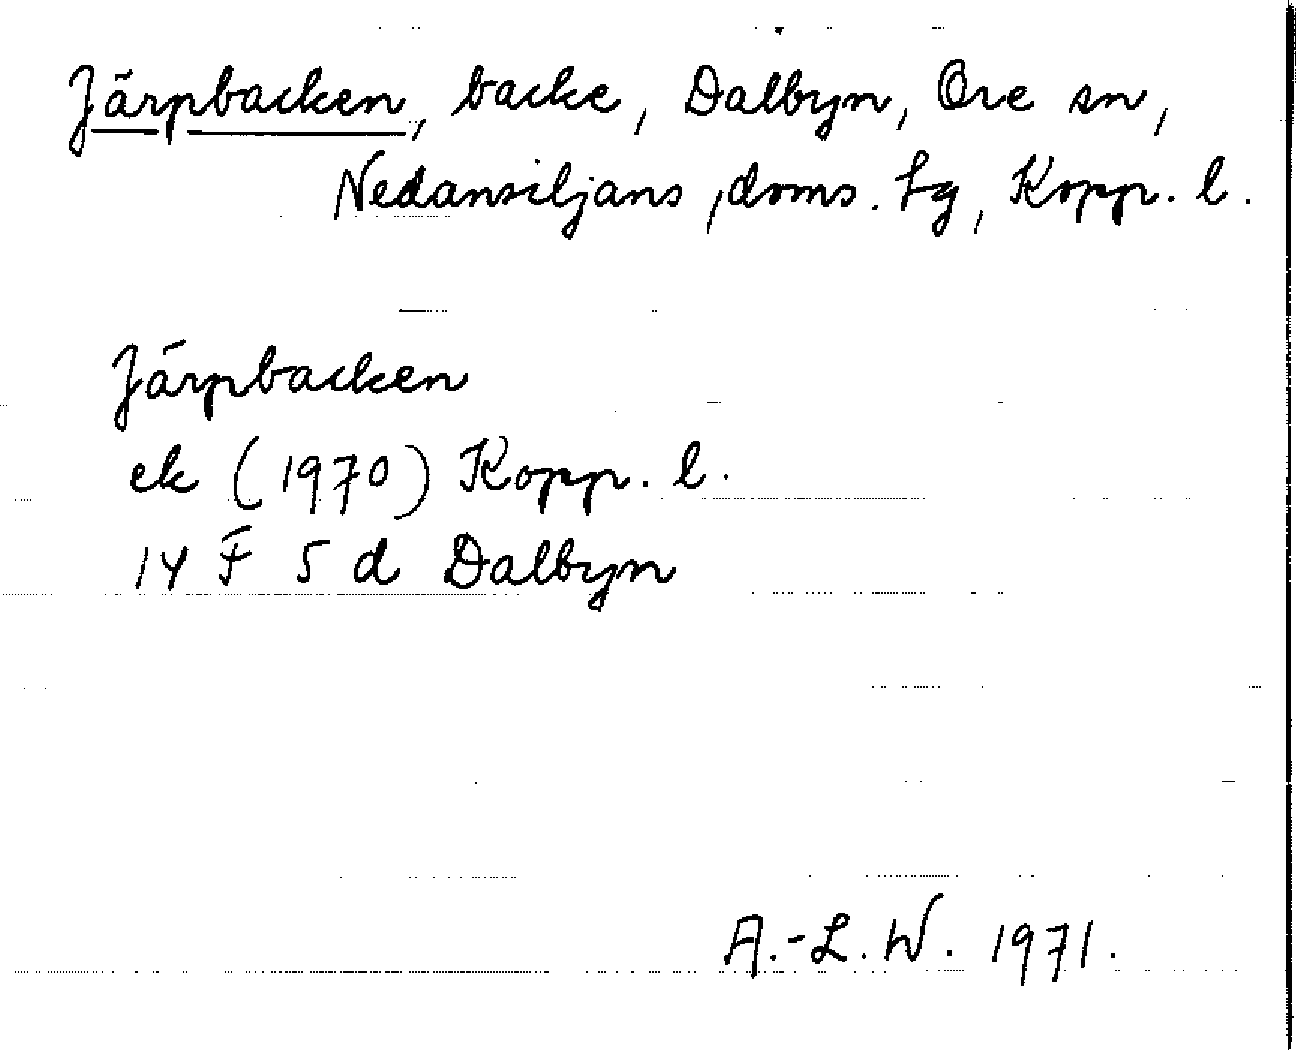 Järpbacken, backe, Dalbyn, Ore sn,
Nedansiljans, doms. tg, Kopp. l.
Järpbacken
ek (1970) Kopp. l.
14 F 5 d Dalbyn
A.-L. W. 1971.